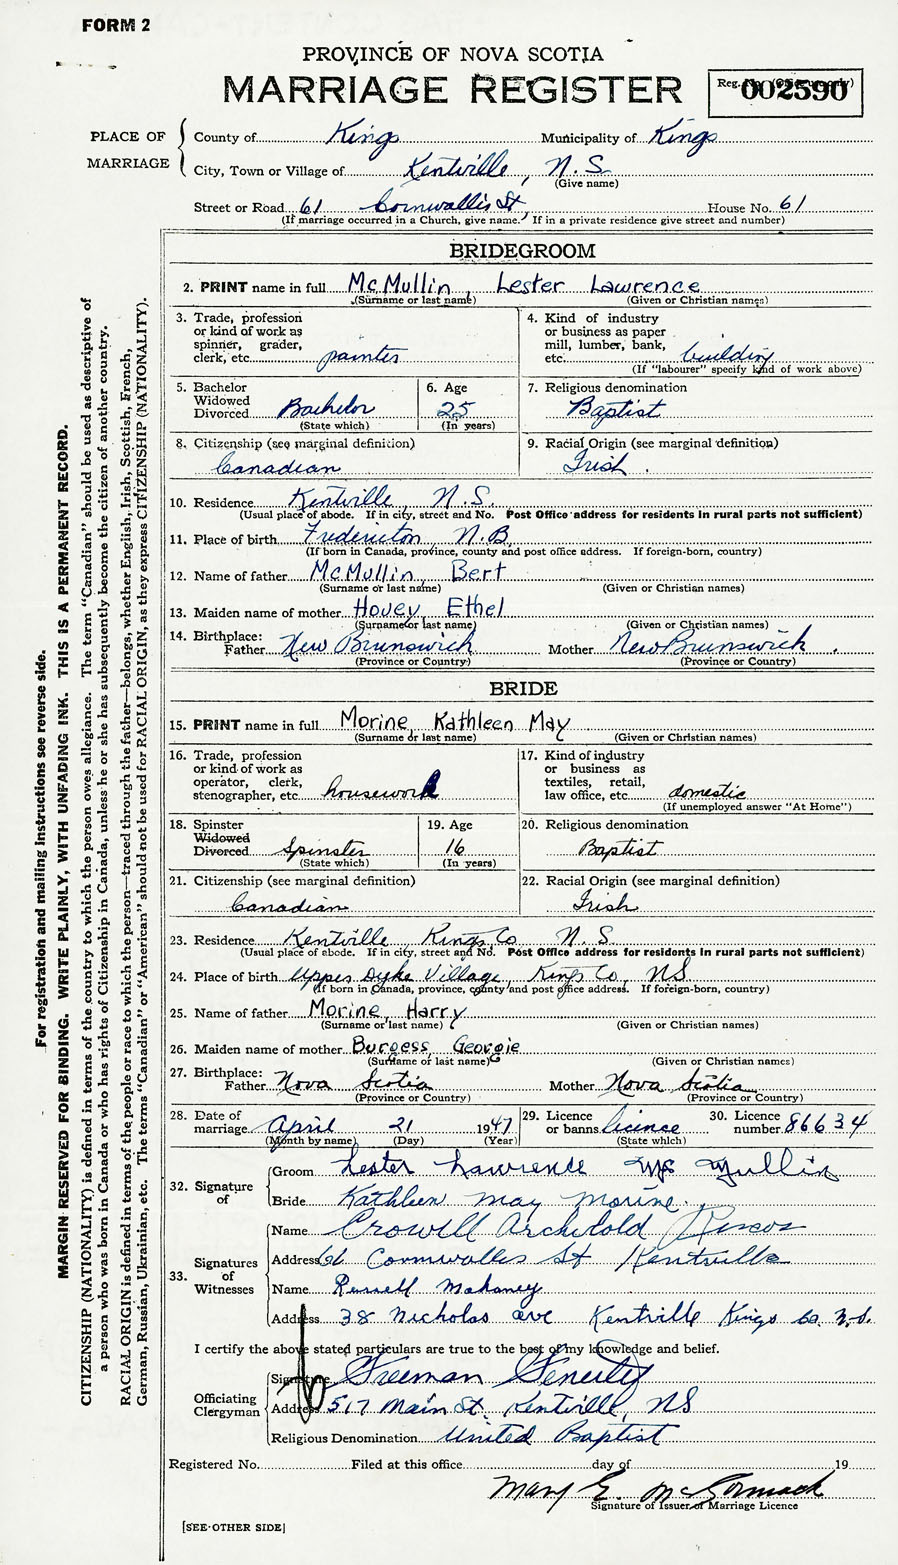 FORM 2
PROVINCE OF NOVA SCOTIA
MARRIAGE REGISTER
002590
PLACE OF MARRIAGE
County of Kings Municipality of Kings
City, Town or Village of Kentville, N.S.
(Give name)
Street or Road 61 Cornwallis St, House No. 61
(If marriage occurred in a Church, give name. If in a private residence give street and number)
BRIDEGROOM
2. PRINT name in full McMullin, Lester Lawrence
(Surname or last name) (Given or Christian names)
3. Trade, profession or kind of work as spinner, grader, clerk, etc. painter
4. Kind of industry or business as paper mill, lumber, bank, etc. building
(If "labourer" specify kind of work above)
5. Bachelor Widowed Divorced Bachelor (State which)
6. Age 25 (In years)
7. Religious denomination Baptist
8. Citizenship (see marginal definition) Canadian
9. Racial Origin (see marginal definition) Irish.
10. Residence Kentville N.S.
(Usual place of abode. If in city, street and No. Post Office address for residents in rural parts not sufficient)
11. Place of birth Fredericton, N.B.
(If born in Canada, province, county and post office address. If foreign-born, country)
12. Name of father McMullin, Bert
(Surname or last name) (Given or Christian names)
13. Maiden name of mother Hovey, Ethel
(Surname or last name) (Given or Christian names)
14. Birthplace: Father New Brunswick Mother New Brunswick.
(Province or Country) (Province or Country)
BRIDE
15. PRINT name in full Morine, Kathleen May
(Surname or last name) (Given or Christian names)
16. Trade, profession or kind of work as operator, clerk, stenographer, etc. housework
17. Kind of industry or business as textiles, retail, law office, etc. domestic
(If unemployed answer "At Home")
18. Spinster Widowed Divorced Spinster (State which)
19. Age 16 (In years)
20. Religious denomination Baptist
21. Citizenship (see marginal definition) Canadian
22. Racial Origin (see marginal definition) Irish
23. Residence Kentville Kings Co. N.S.
(Usual place of abode. If in city, street and No. Post Office address for residents in rural parts not sufficient)
24. Place of birth Upper Dyke Village, Kings Co, NS
(If born in Canada, province, county and post office address. If foreign-born, country)
25. Name of father Morine, Harry
(Surname or last name) (Given or Christian names)
26. Maiden name of mother Burgess, Georgie
(Surname or last name) (Given or Christian names)
27. Birthplace: Father Nova Scotia Mother Nova Scotia
(Province or Country) (Province or Country)
28. Date of marriage April 21 1947
(Month by name) (Day) (Year)
29. Licence or banns licence (State which)
30. Licence number 86634
32. Signature of
Groom Lester Lawrence McMullin
Bride Kathleen may morine.
33. Signatures of Witnesses
Name Crowell Archibold
Address 61 Cornwallis St Kentville
Name Russell Mahaney
Address 38 Nicholas ave Kentville Kings Co. N.S.
I certify the above stated particulars are true to the best of my knowledge and belief.
Officiating Clergyman
Signature Freeman Fenerty
Address 517 Main St. Kentville, NS
Religious Denomination United Baptist
Registered No. Filed at this office day of 19
Mary E. McCormack
Signature of Issuer of Marriage Licence
[SEE OTHER SIDE]
For registration and mailing instructions see reverse side.
MARGIN RESERVED FOR BINDING. WRITE PLAINLY, WITH UNFADING INK. THIS IS A PERMANENT RECORD.
CITIZENSHIP (NATIONALITY) is defined in terms of the country to which the person owes allegiance. The term "Canadian" should be used as descriptive of
a person who was born in Canada or who has rights of Citizenship in Canada, unless he or she has subsequently become the citizen of another country.
RACIAL ORIGIN is defined in terms of the people or race to which the person—traced through the father—belongs, whether English, Irish, Scottish, French,
German, Russian, Ukrainian, etc. The terms "Canadian" or "American" should not be used for RACIAL ORIGIN, as they express CITIZENSHIP (NATIONALITY).